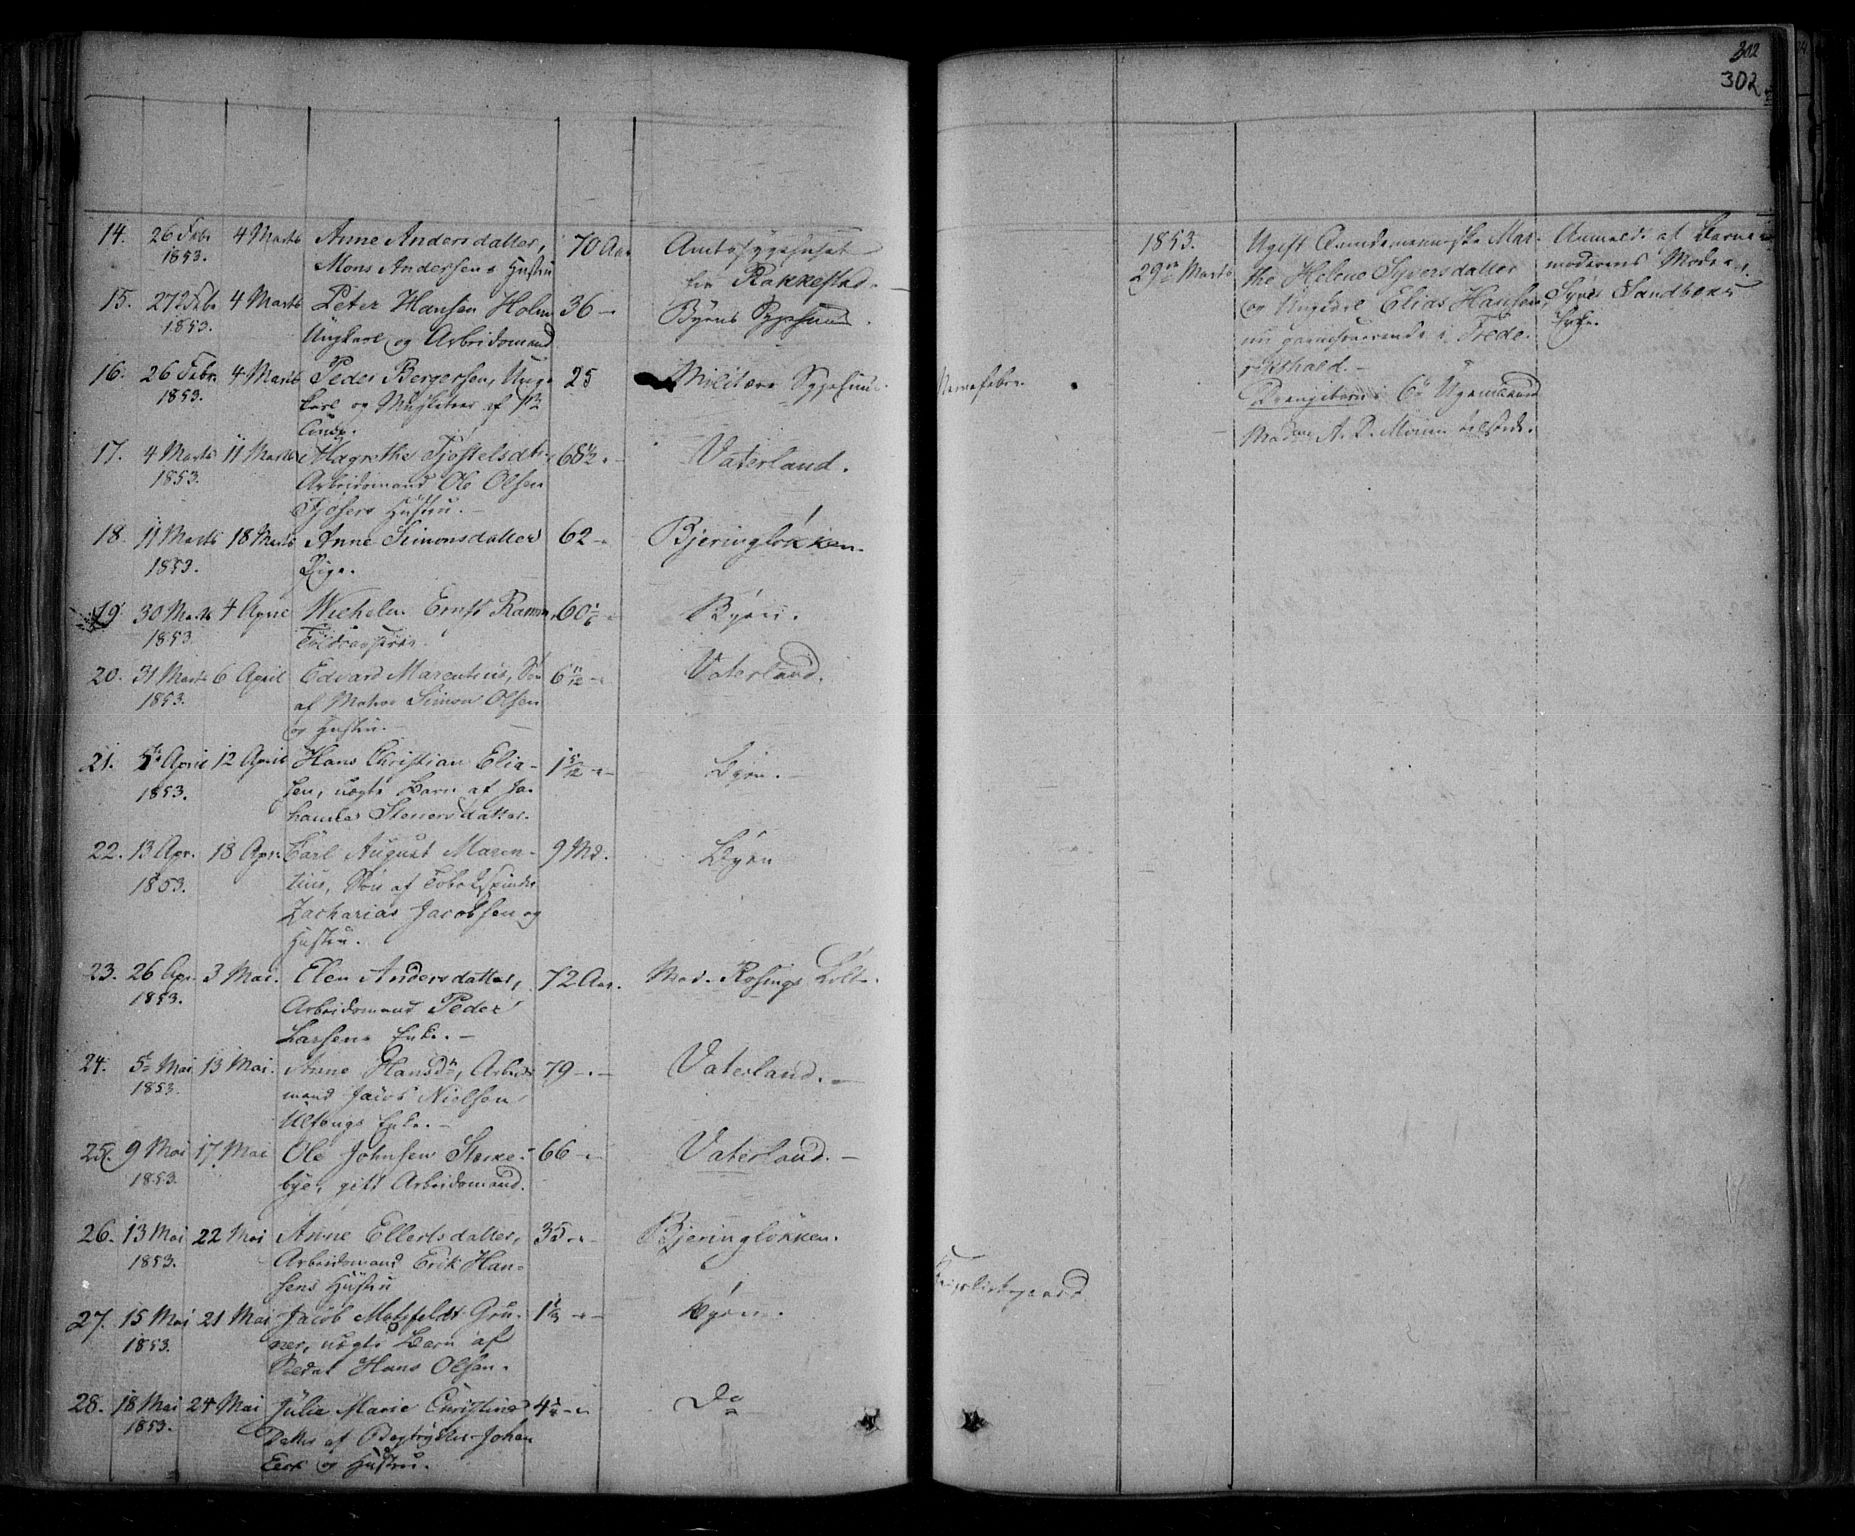 302
302
14. 26 Febr 4 Marts Anne Andersdatter, 70 Aar Amtssygehuset
1853. Mons Andersens Hustru fra Rakkestad.
15. 27 Febr 4 Marts Peter Hansen Holm 36 Byens Sygehuus.
1853. Ungkarl og Arbeidsmand
16. 26 Febr. 4 Marts Peder Bergersen, Ung- 25 Militære Sygehuus. Nervefeber.
1853. karl og Musketeer af
17. 4 Marts 11 Marts Magrethe Tjøstelsdtr. 68½ Vaterland.
1853. Arbeidsmand Ole Olsen
Hustru.
18. 11 Marts 18 Marts Anne Simonsdatter 62 Bjeringløkken.
1853. Pige.
19. 30 Marts 4 April Wilhelm Ernst Ramm 60 Byen.
1853.
20. 31 Marts 6 April Edvard Marentius, Søn 6 11/12 Vaterland.
1853. af Matros Simon Olsen
og Hustru.
21. 5te April 12 April Hans Christian Elia- 1 5/12 Byen.
1853. sen, uægte Barn af Jo-
hanne Stenersdatter.
22. 13 Apr. 18 Apr. Carl August Maren- 9 Md. Byen
1853. tius, Søn af Tobakspinder
Zacharias Jacobsen og
Hustru.
23. 26 Apr. 3 Mai. Elen Andersdatter, 72 Aar. Mad. Rosings Løkke.
1853. Arbeidsmand Peder
Larsens Enke.
24. 5te Mai 13 Mai. Anne Hansdtr, Arbeids 79 Vaterland.
1853. mand Jacob Nielsen
Enke.
25. 9 Mai 17 Mai Ole Johnsen 66 Vaterland.
1853. bye, gift Arbeidsmand.
26. 13 Mai 22 Mai Anne Ellertsdatter, 35 Bjeringløkken.
1853. Arbeidsmand Erik Han-
sens Hustru
27. 15 Mai 21 Mai Jacob Motzfeldt Gru- 1 Byen.
1853. ner, uægte Barn af
Hans Olsen.
28. 18 Mai 24 Mai Julie Marie Christine 4 Do
1853. Datter af Bogtrykker Johan
og Hustru.
1853.
29de Marts
Ugift Qvindemenneske Mar-
the Helene Syversdatter
og Ungkarl Elias Hansen,
nu nærværende i Frede-
rikshald.
6 Ugemaaned
Madam A. D. Moum tilstede.
Anmeldt af Barne-
moderens Moder
Sandbeks
Enke.